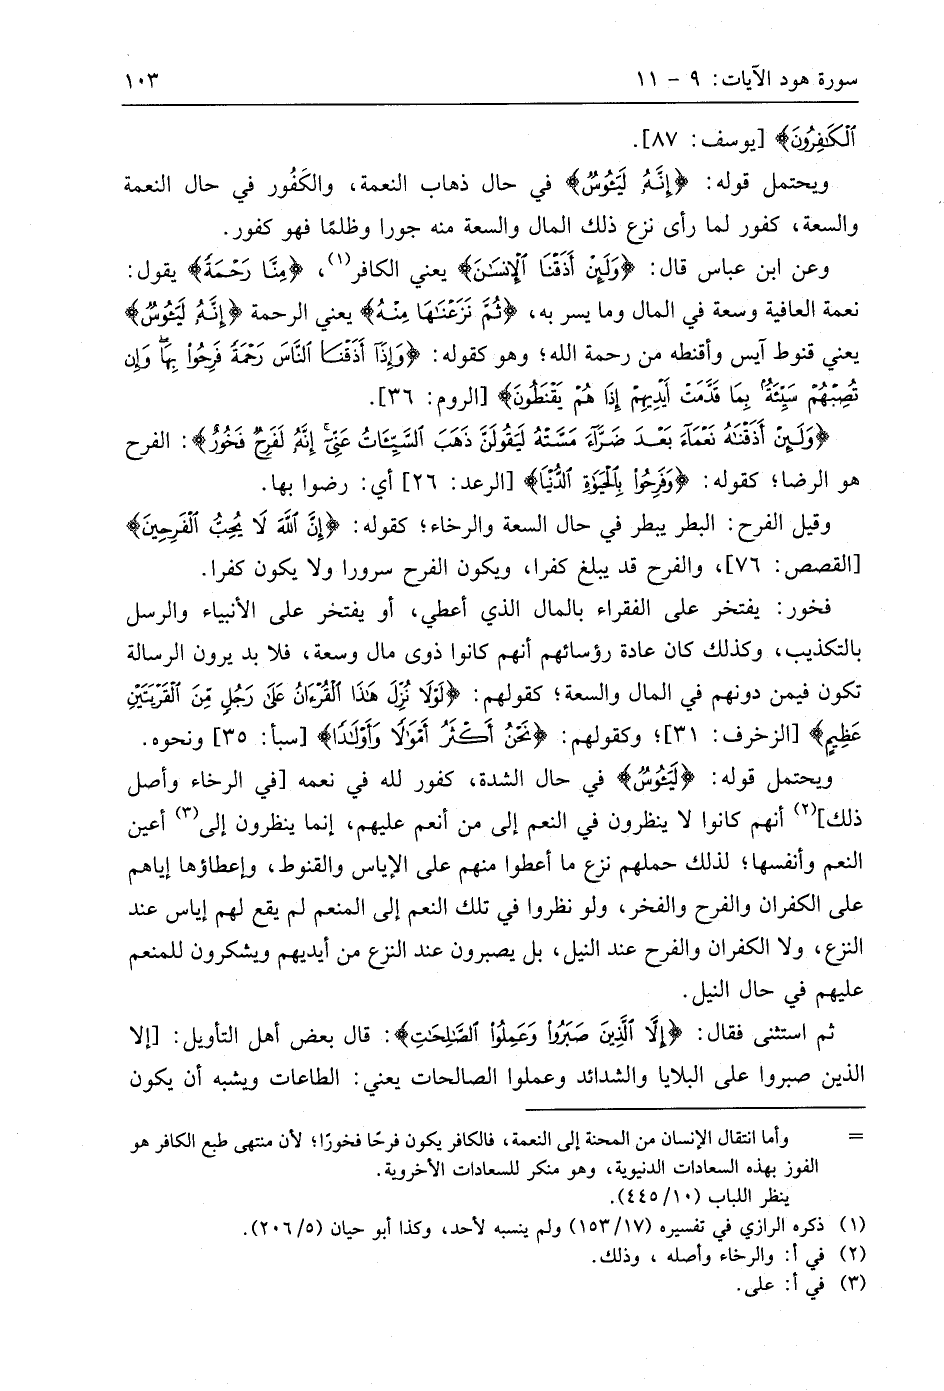 سورة هود الآيات: ٩ - ١١ ١٠٣
ٱلْكَٰفِرُونَ﴾ [يوسف: ٨٧].
ويحتمل قوله: ﴿إِنَّهُۥ لَيَـُٔوسٌ﴾ في حال ذهاب النعمة، والكَفُور في حال النعمة
والسعة، كفور لما رأى نزع ذلك المال والسعة منه جورا وظلمًا فهو كفور.
وعن ابن عباس قال: ﴿وَلَئِنْ أَذَقْنَا ٱلْإِنسَٰنَ﴾ يعني الكافر(١)، ﴿مِنَّا رَحْمَةً﴾ يقول:
نعمة العافية وسعة في المال وما يسر به، ﴿ثُمَّ نَزَعْنَٰهَا مِنْهُ﴾ يعني الرحمة ﴿إِنَّهُۥ لَيَـُٔوسٌ﴾
يعني قنوط آيس وأقنطه من رحمة الله؛ وهو كقوله: ﴿وَإِذَآ أَذَقْنَا ٱلنَّاسَ رَحْمَةً فَرِحُوا۟ بِهَا ۖ وَإِن
تُصِبْهُمْ سَيِّئَةٌۢ بِمَا قَدَّمَتْ أَيْدِيهِمْ إِذَا هُمْ يَقْنَطُونَ﴾ [الروم: ٣٦].
﴿وَلَئِنْ أَذَقْنَٰهُ نَعْمَآءَ بَعْدَ ضَرَّآءَ مَسَّتْهُ لَيَقُولَنَّ ذَهَبَ ٱلسَّيِّـَٔاتُ عَنِّىٓ ۚ إِنَّهُۥ لَفَرِحٌ فَخُورٌ﴾: الفرح
هو الرضا؛ كقوله: ﴿وَفَرِحُوا۟ بِٱلْحَيَوٰةِ ٱلدُّنْيَا﴾ [الرعد: ٢٦] أي: رضوا بها.
وقيل الفرح: البطر يبطر في حال السعة والرخاء؛ كقوله: ﴿إِنَّ ٱللَّهَ لَا يُحِبُّ ٱلْفَرِحِينَ﴾
[القصص: ٧٦]، والفرح قد يبلغ كفرا، ويكون الفرح سرورا ولا يكون كفرا.
فخور: يفتخر على الفقراء بالمال الذي أعطي، أو يفتخر على الأنبياء والرسل
بالتكذيب، وكذلك كان عادة رؤسائهم أنهم كانوا ذوى مال وسعة، فلا بد يرون الرسالة
تكون فيمن دونهم في المال والسعة؛ كقولهم: ﴿لَوْلَا نُزِّلَ هَٰذَا ٱلْقُرْءَانُ عَلَىٰ رَجُلٍ مِّنَ ٱلْقَرْيَتَيْنِ
عَظِيمٍ﴾ [الزخرف: ٣١]؛ وكقولهم: ﴿نَحْنُ أَكْثَرُ أَمْوَٰلًا وَأَوْلَٰدًا﴾ [سبأ: ٣٥] ونحوه.
ويحتمل قوله: ﴿لَيَـُٔوسٌ﴾ في حال الشدة، كفور لله في نعمه [في الرخاء وأصل
ذلك](٢) أنهم كانوا لا ينظرون في النعم إلى من أنعم عليهم، إنما ينظرون إلى(٣) أعين
النعم وأنفسها؛ لذلك حملهم نزع ما أعطوا منهم على الإياس والقنوط، وإعطاؤها إياهم
على الكفران والفرح والفخر، ولو نظروا في تلك النعم إلى المنعم لم يقع لهم إياس عند
النزع، ولا الكفران والفرح عند النيل، بل يصبرون عند النزع من أيديهم ويشكرون للمنعم
عليهم في حال النيل.
ثم استثنى فقال: ﴿إِلَّا ٱلَّذِينَ صَبَرُوا۟ وَعَمِلُوا۟ ٱلصَّٰلِحَٰتِ﴾: قال بعض أهل التأويل: [إلا
الذين صبروا على البلايا والشدائد وعملوا الصالحات يعني: الطاعات ويشبه أن يكون
= وأما انتقال الإنسان من المحنة إلى النعمة، فالكافر يكون فرحًا فخورًا؛ لأن منتهى طبع الكافر هو
الفوز بهذه السعادات الدنيوية، وهو منكر للسعادات الأخروية.
ينظر اللباب (١٠/٤٤٥).
(١) ذكره الرازي في تفسيره (١٧/١٥٣) ولم ينسبه لأحد، وكذا أبو حيان (٥/٢٠٦).
(٢) في أ: والرخاء وأصله ، وذلك.
(٣) في أ: على.